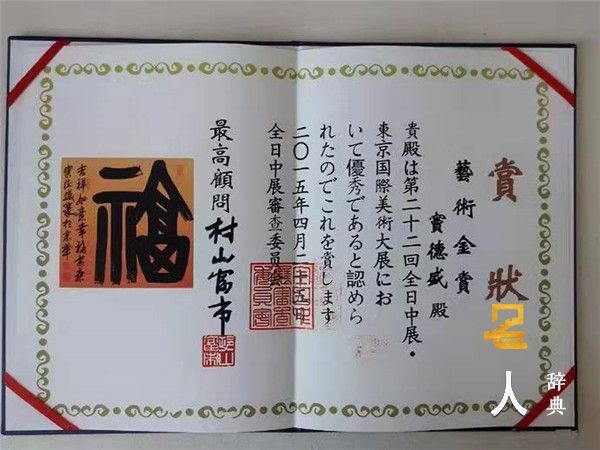 賞狀
藝術金賞
竇德盛 殿
貴殿は第二十二回全日中展・
東京国際美術大展にお
いて優秀であると認めら
れたのでこれを賞します
二〇一五年四月二十五日
全日中展審査委員会
最高顧問 村山富市
福
吉祥如意幸福安康
人
辞典